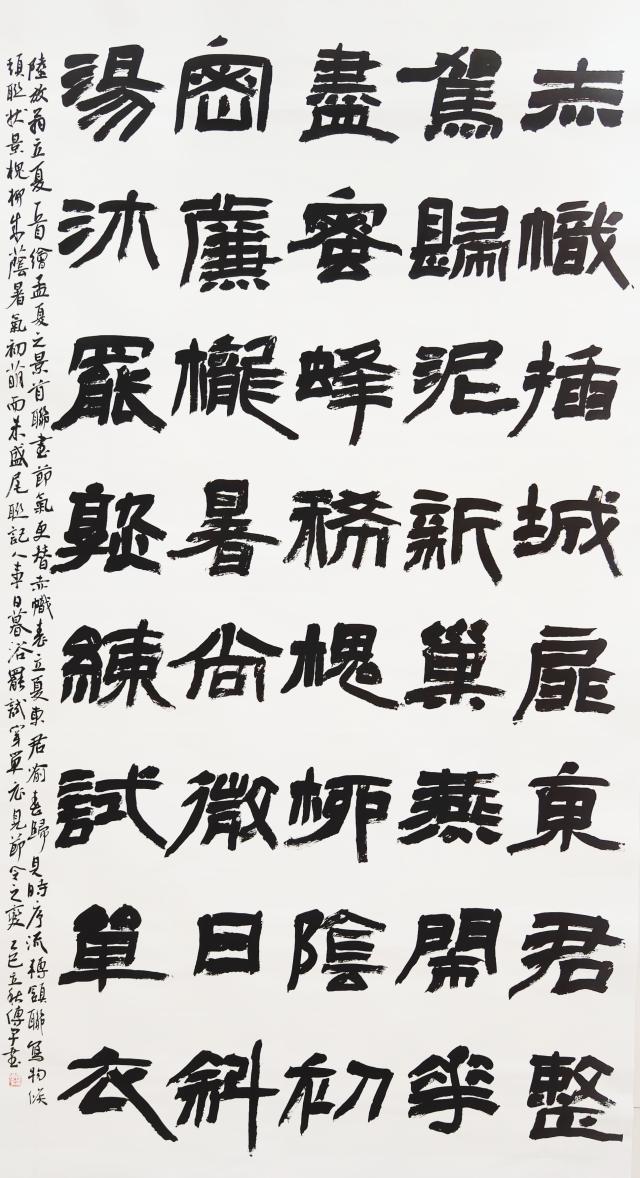 赤幟插城扉東君整
駕歸泥新巢燕鬧花
盡蜜蜂稀槐柳陰初
密薕櫳暑尚微日斜
湯沐罷孰練試單衣
陸放翁立夏一首繪孟夏之景首聯書節氣更替赤幟表立夏東君喻春歸見時序流轉頷聯寫物候
頸聯狀景槐柳成蔭暑氣初萌而未盛尾聯記人事日暮浴罷試穿單衣見節令之變乙巳立秋傅子書